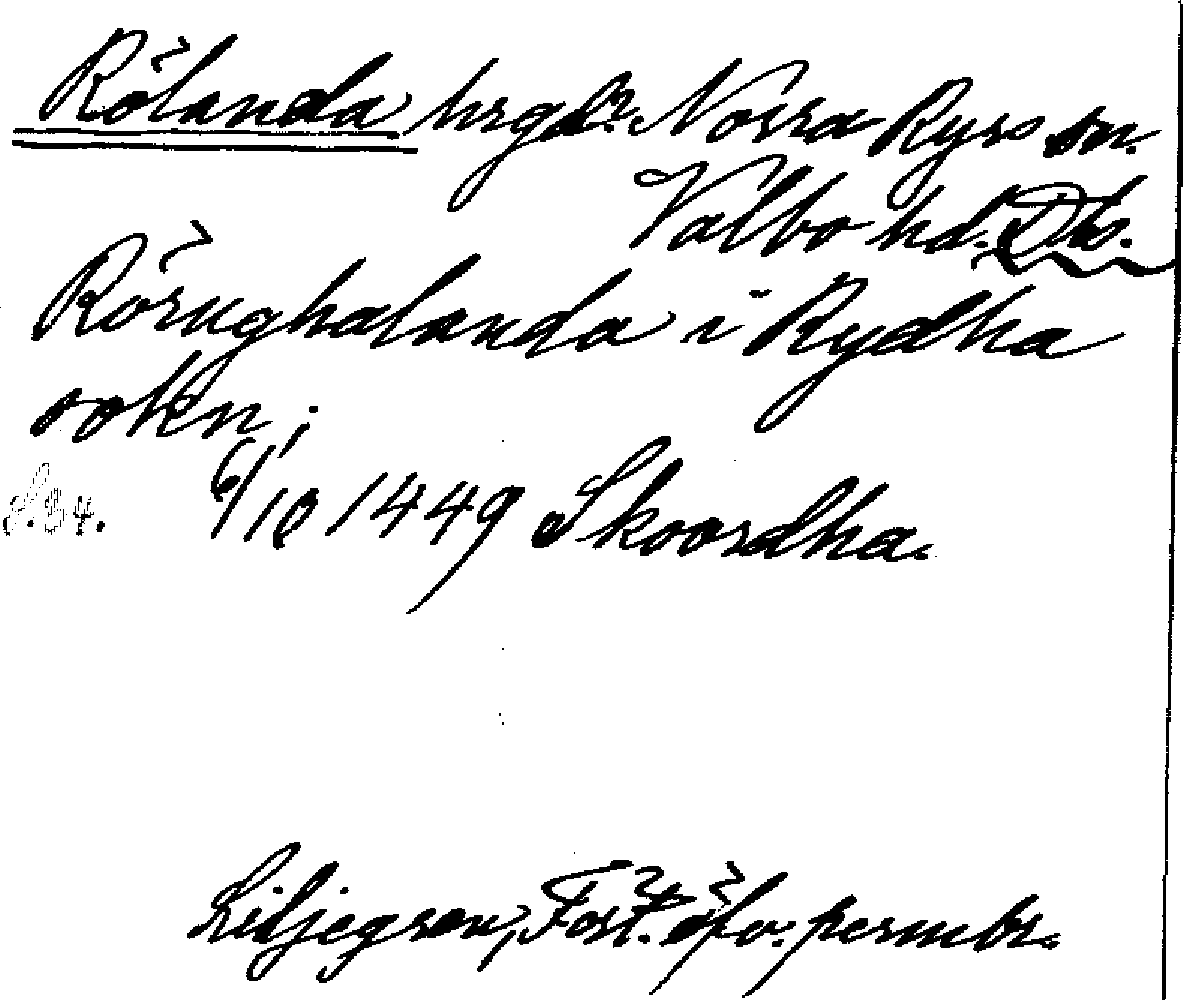 Rölanda hrgd. Norra Ryrs sn.
Valbo hd. Dls.
Rörughalanda i Rydha
sokn;
S. 34. 6/10 1449 Skoordha.
Liljegren, Fört. öfv. permbr.